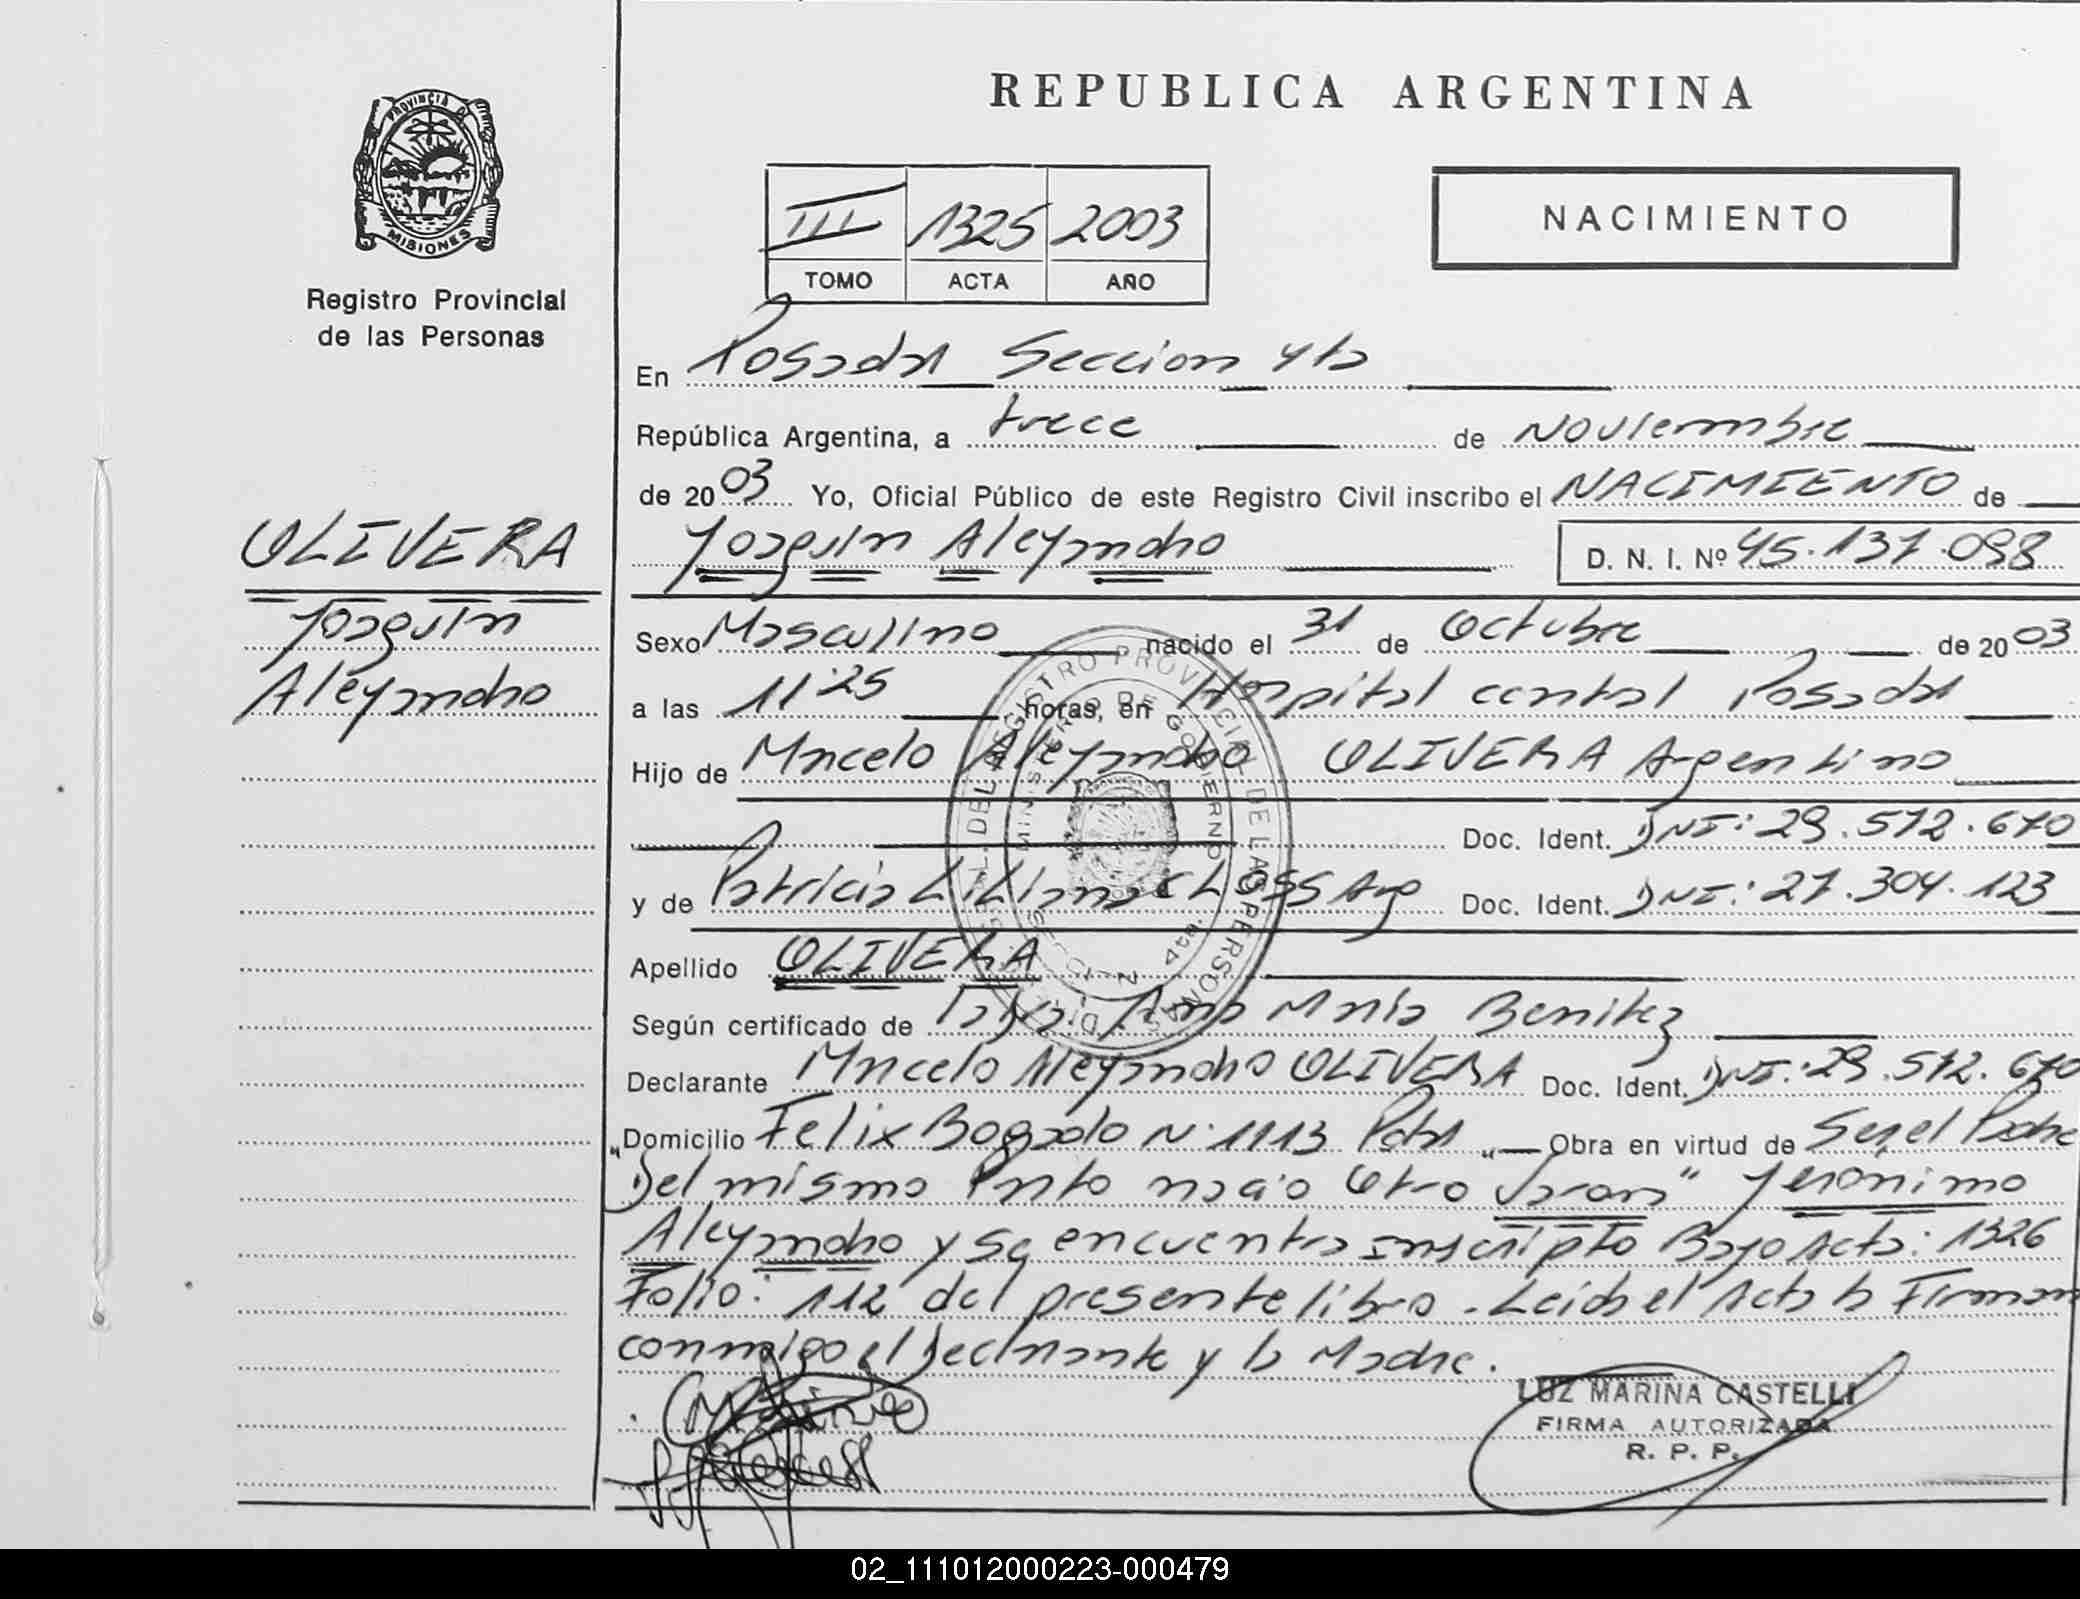 REPUBLICA ARGENTINA
PROVINCIA DE MISIONES
Registro Provincial
de las Personas
III 1325 2003
TOMO ACTA AÑO
NACIMIENTO
En Posadas Seccion 4ta
República Argentina, a trece de Noviembre
de 2003 Yo, Oficial Público de este Registro Civil inscribo el NACIMIENTO de
Joaquin Alejandro D. N. I. Nº 45.137.098
OLIVERA
Joaquin
Alejandro
Sexo Masculino nacido el 31 de Octubre de 2003
a las 11:25 horas, en Hospital central Posadas
Hijo de Marcelo Alejandro OLIVERA Argentino
Doc. Ident. DNI: 29.572.670
y de Patricia Liliana Arg Doc. Ident. DNI: 27.304.123
Apellido OLIVERA
Según certificado de Ana Maria Benitez
Declarante Marcelo Alejandro OLIVERA Doc. Ident. DNI: 29.572.670
"Domicilio Felix Bogado N: 1113 Pdas "— Obra en virtud de Ser el Padre
Del mismo Parto nació Otro Varon" Jerónimo
Alejandro y se encuentra inscripto Bajo Acta: 1326
Folio: 112 del presente libro. Leida el Acta la Firman
conmigo el Declarante y la Madre.
LUZ MARINA CASTELLI
FIRMA AUTORIZADA
R. P. P.
02_111012000223-000479